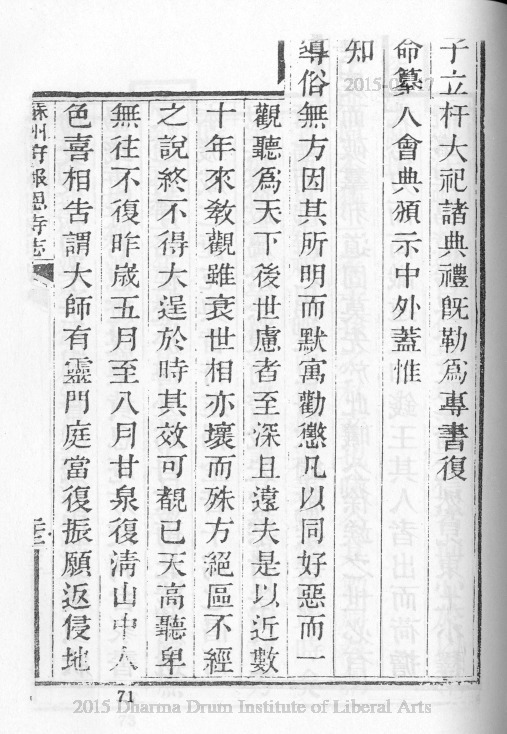 子立杆大祀諸典禮旣勒爲專書復
命纂入會典頒示中外蓋惟
知
導俗無方因其所明而默寓勸懲凡以同好惡而一
觀聽爲天下後世慮者至深且遠夫是以近數
十年來敎觀雖衰世相亦壞而殊方絕區不經
之說終不得大逞於時其效可覩已天高聽卑
無往不復昨歲五月至八月甘泉復淸山中人
色喜相吿謂大師有靈門庭當復振願返侵地
蘇州府報恩寺志
71
2015 Dharma Drum Institute of Liberal Arts